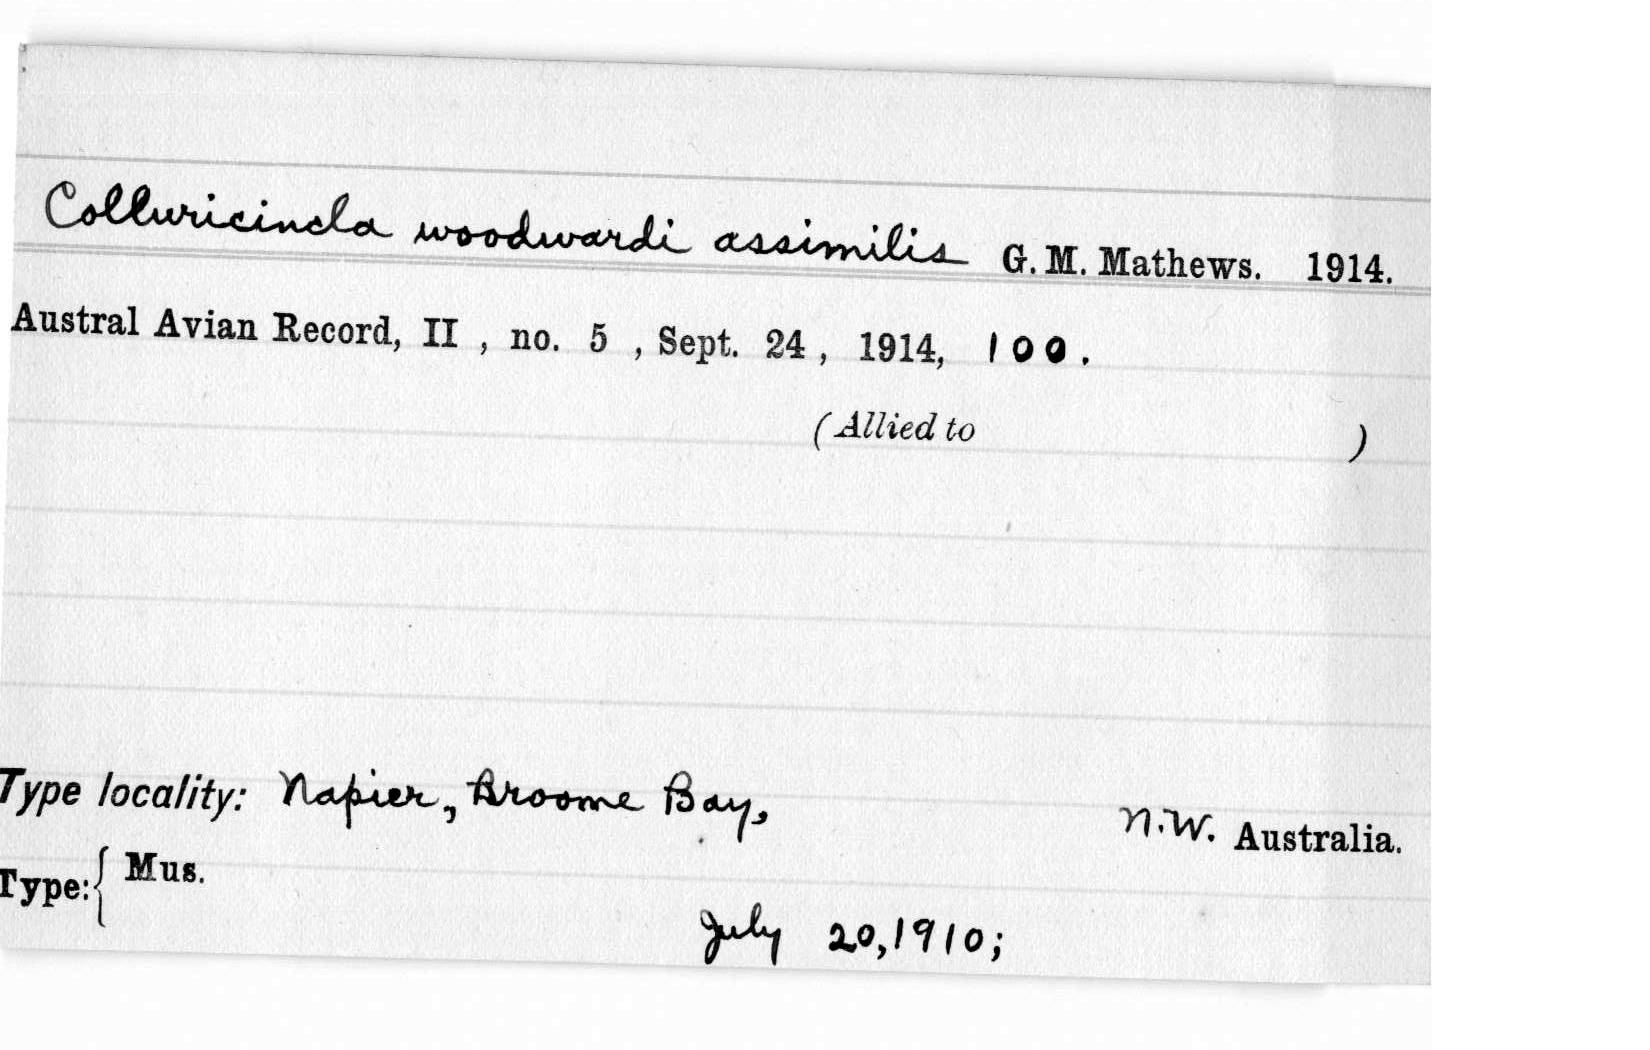 Colluricincla woodwardi assimilis G. M. Mathews. 1914.
Austral Avian Record, II , no. 5 , Sept. 24 , 1914, 100 .
(Allied to )
Type locality: Napier, Broome Bay, N.W. Australia.
Type: { Mus.
July 20, 1910;